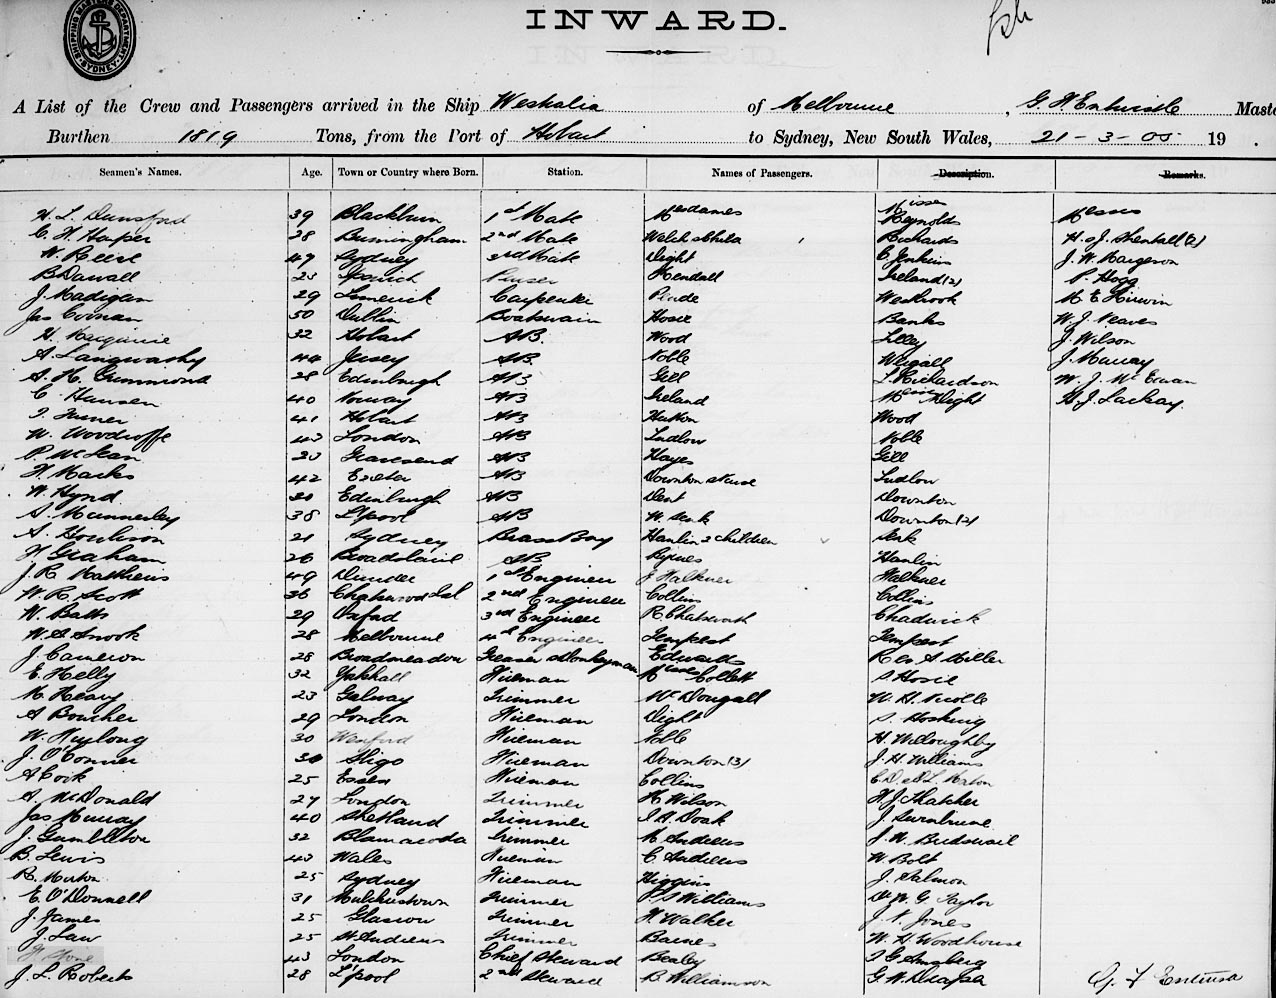 SHIPPING MASTERS DEPARTMENT SYDNEY
INWARD.
A List of the Crew and Passengers arrived in the Ship Westralia of Melbourne, G. H Entwistle Maste
Burthen 1819 Tons, from the Port of Hobart to Sydney, New South Wales, 21-3-05 19 .
Seamen's Names. Age. Town or Country where Born. Station. Names of Passengers. Description. Remarks.
H. L. Dunsford 39 Blackburn 1st Mate Mesdames Misses Reynolds Messrs
C. H. Harper 28 Burmingham 2nd Mate Welch & child Richards H. & J. Shentall (2)
W. Reese 47 Sydney 3rd Mate Dight C Jenkins J. W. Margerson
B Davall 23 Ipswich Purser Kendall Ireland (2) P. Hogg
J. Madigan 29 Limerick Carpenter Westbrook M E Kirwin
Jas Cornan 50 Dublin Boatswain Hosie Banks W. J. Neaves
32 Hobart AB. Wood Lilley J. Wilson
A. 44 Jersey AB Noble Weigall J Murray
A. H. Grimmond 28 Edinburgh AB Gill L Richardson W. J. McEwan
C. Hansen 40 Norway AB Ireland Misses Dight H. J. Lackay
J. Turner 41 Hobart AB Hutton Wood
W. Woodroffe 43 London AB Ludlow Noble
P. McLean 23 Gravesend AB Hayes Gill
H. Marks 42 Exeter AB Downton & Nurse Ludlow
W. Hynd 30 Edinburgh AB Dent Downton
S. Munnerley 38 L'pool AB W. Sisk Downton (2)
A. Houlison 21 Sydney Brass Boy Hanlin 2 children Sisk
H Graham 26 AB Byrnes Hanlin
J. R Matthews 49 Dundee 1st Engineer J Falkner Falkner
W. R. Scott 36 2nd Engineer Collins Collins
W. Batts 29 Oxford 3rd Engineer R. Chatsworth Chadwick
W. S. Snook 28 Melbourne 4th Engineer Tempest Tempest
J. Cameron 28 Broadmeadow Greaser & Donkeyman Edwards Rev A Miller
E. Kelly 32 Fireman Misses Collett S Hosie
M. Heavy 23 Galway Trimmer McDougall W. H. Nicolle
A Boucher 29 London Fireman Dight S. Hosking
W. Furlong 30 Wexford Fireman Noble H. Willoughby
J. O'Connor 30 Sligo Fireman Downton (3) J. H. Williams
A Cook 25 Essex Fireman Collins C. D. & L. Norton
A. McDonald 27 London Trimmer H Wilson H. J. Thatcher
Jas Murray 40 Shetland Trimmer J. H. Doak J. Turnbull
J. Gambleton 32 Trimmer M. Andrews J. W. Birdsall
B. Lewis 43 Wales Fireman C. Andrews W. Bolt
R. Morton 25 Sydney Fireman Higgins J. Salmon
E. O'Donnell 31 Trimmer P. S Williams Dr W. G Taylor
J. James 25 Glasgow Trimmer H. Walker J. P. Jones
J. Law 25 St Andrews Trimmer Barnes W. H. Woodhouse
43 London Chief Steward Bealey
J. L. Roberts 28 L'pool 2nd Steward B. Williamson G. W. Draper
G. H Entwistle